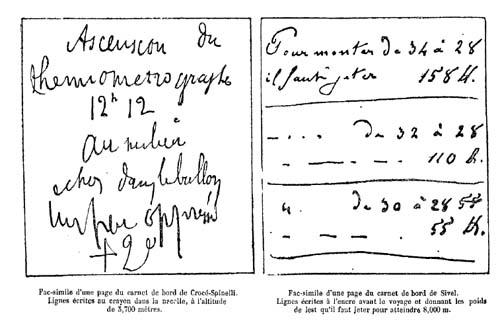 Ascension du
thermometrographe
12h 12
au milieu
echos dans le ballon
un peu oppressé
+ 2°
Fac-simile d'une page du carnet de bord de Crocé-Spinelli.
Lignes écrites au crayon dans la nacelle, à l'altitude
de 5,700 mètres.
Pour monter de 34 à 28
il faut jeter 158 k.
- . . . de 32 à 28
- — - — 110 k.
" de 30 à 28 55
- — - — 55 k.
Fac-simile d'une page du carnet de bord de Sivel.
Lignes écrites à l'encre avant le voyage et donnant les poids
de lest qu'il faut jeter pour atteindre 8,000 m.